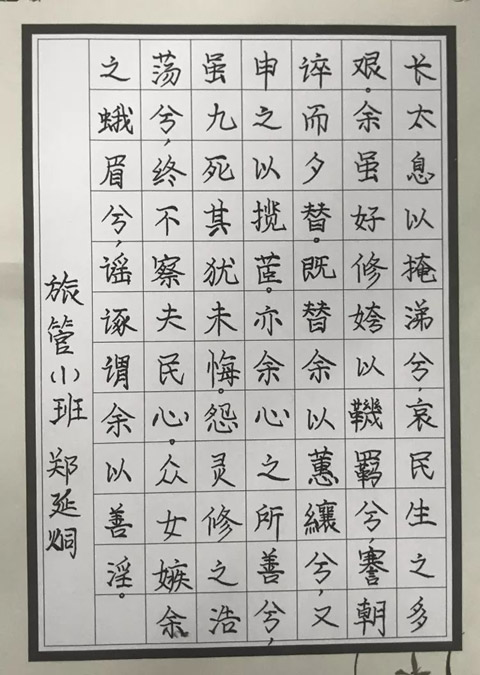 长太息以掩涕兮,哀民生之多
艰。余虽好修姱以鞿羁兮,謇朝
谇而夕替。既替余以蕙纕兮,又
申之以揽茝。亦余心之所善兮,
虽九死其犹未悔。怨灵修之浩
荡兮,终不察夫民心。众女嫉余
之蛾眉兮,谣诼谓余以善淫。
旅管(1)班 郑延烔